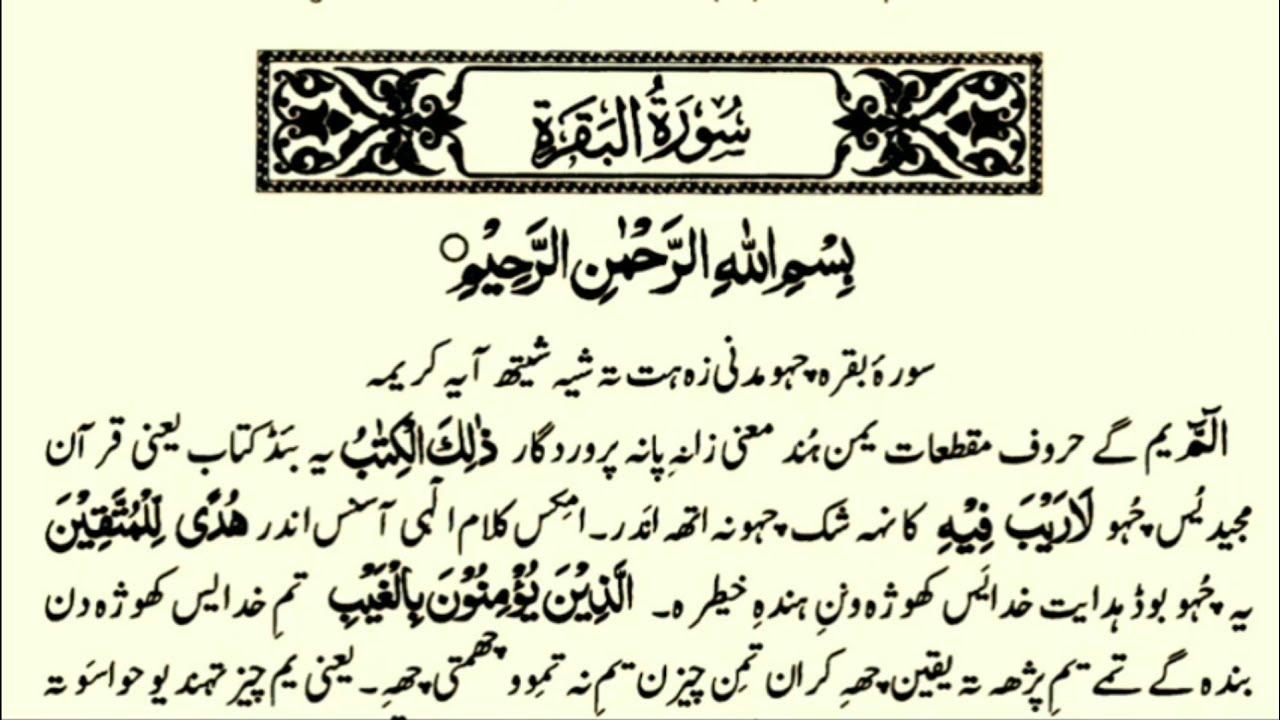 سُوْرَةُ الْبَقَرَةِ
بِسْمِ اللّٰهِ الرَّحْمٰنِ الرَّحِيْمِ
سورۂ بقرہ چھو مدنی زہ ہت تہ شیہ شیٹھ آیہ کریمہ
الٓمّٓ یم گے حروف مقطعات یمن ہُند معنی زانہِ پانہ پروردگار ذٰلِكَ الْكِتٰبُ یہ بَنڈ کتاب یعنی قرآن
مجید یُس چُھو لَارَيْبَ فِيْهِ کانہہ شک چھونہ اتھ اندَر۔ امِکس کلام الٰہی آسنس اندر هُدًى لِّلْمُتَّقِيْنَ
یہ چُھو بوڈ ہدایت خدایَس کھوژہ ونِ ہندہِ خیطرہ۔ الَّذِيْنَ يُؤْمِنُوْنَ بِالْغَيْبِ تمِ خدایس کھوژہ دن
بندہ گے تمے یمِ پژھہ تہ یقین چھہِ کران تمِن چیزن یمِ نہ تمِو وچھمتی چھہِ۔ یعنی یم چیز تہندیو حواسَو تہ